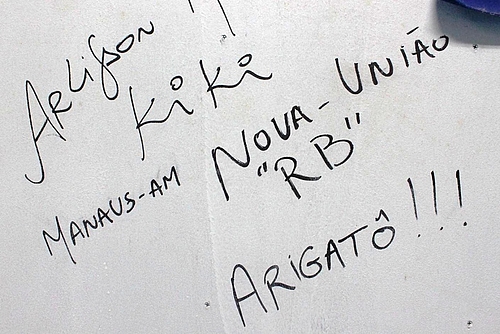 Arlifson !!
Kiki
MANAUS-AM
NOVA-UNIÃO
"RB"
ARIGATÔ!!!